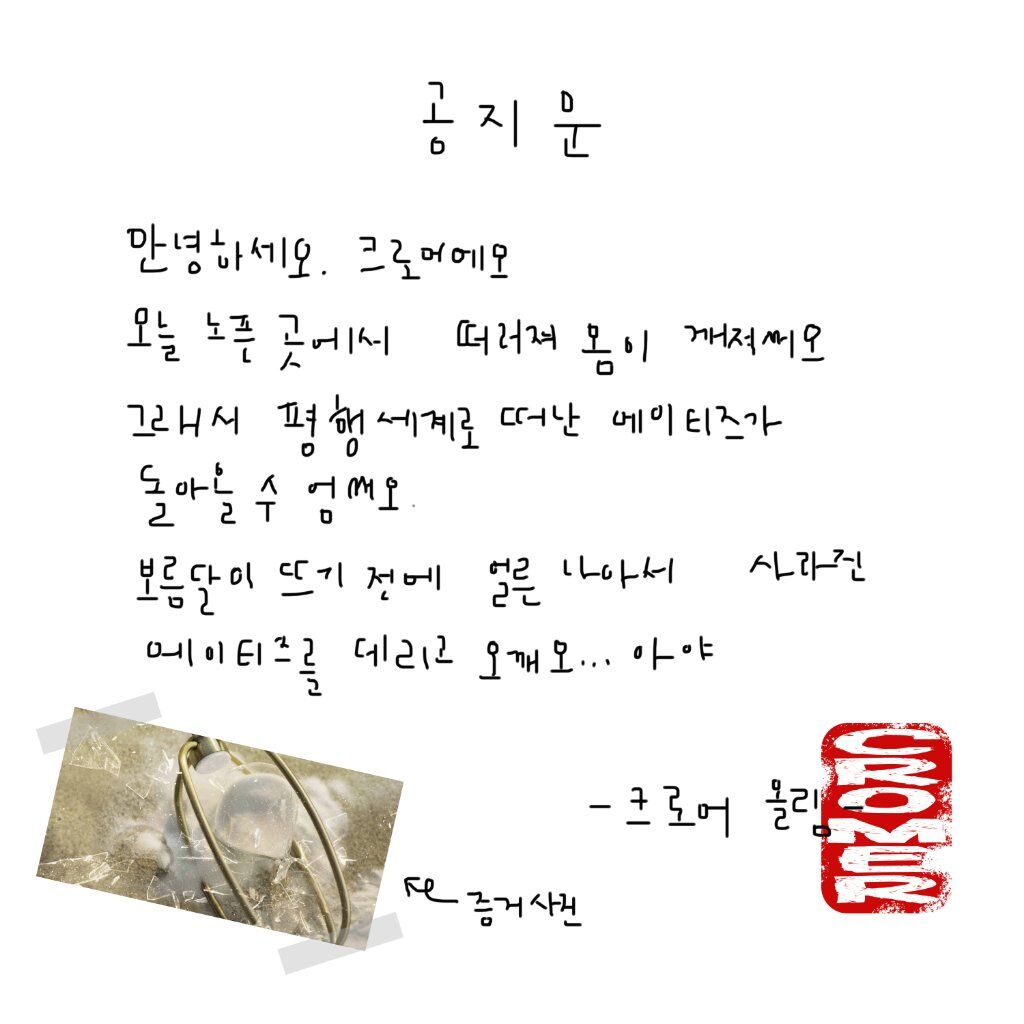 공지문
안녕하세요. 크로머에오
오늘 노픈 곳에서 떠러져 몸이 깨져써오
그래서 평행세계로 떠난 에이티즈가
돌아올 수 엄써오.
보름달이 뜨기 전에 얼른 나아서 사라진
에이티즈를 데리고 오께오... 아야
-크로머 올림-
CROMER
증거사진